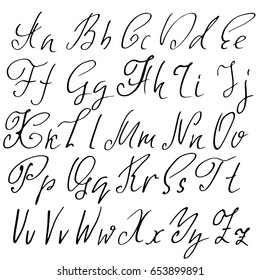 Aa Bb Cc Dd Ee
Ff Gg Hh Ii Jj
Kk Ll Mm Nn Oo
Pp Qq Rr Ss Tt
Uu Vv Ww Xx Yy Zz
shutterstock.com · 653899891